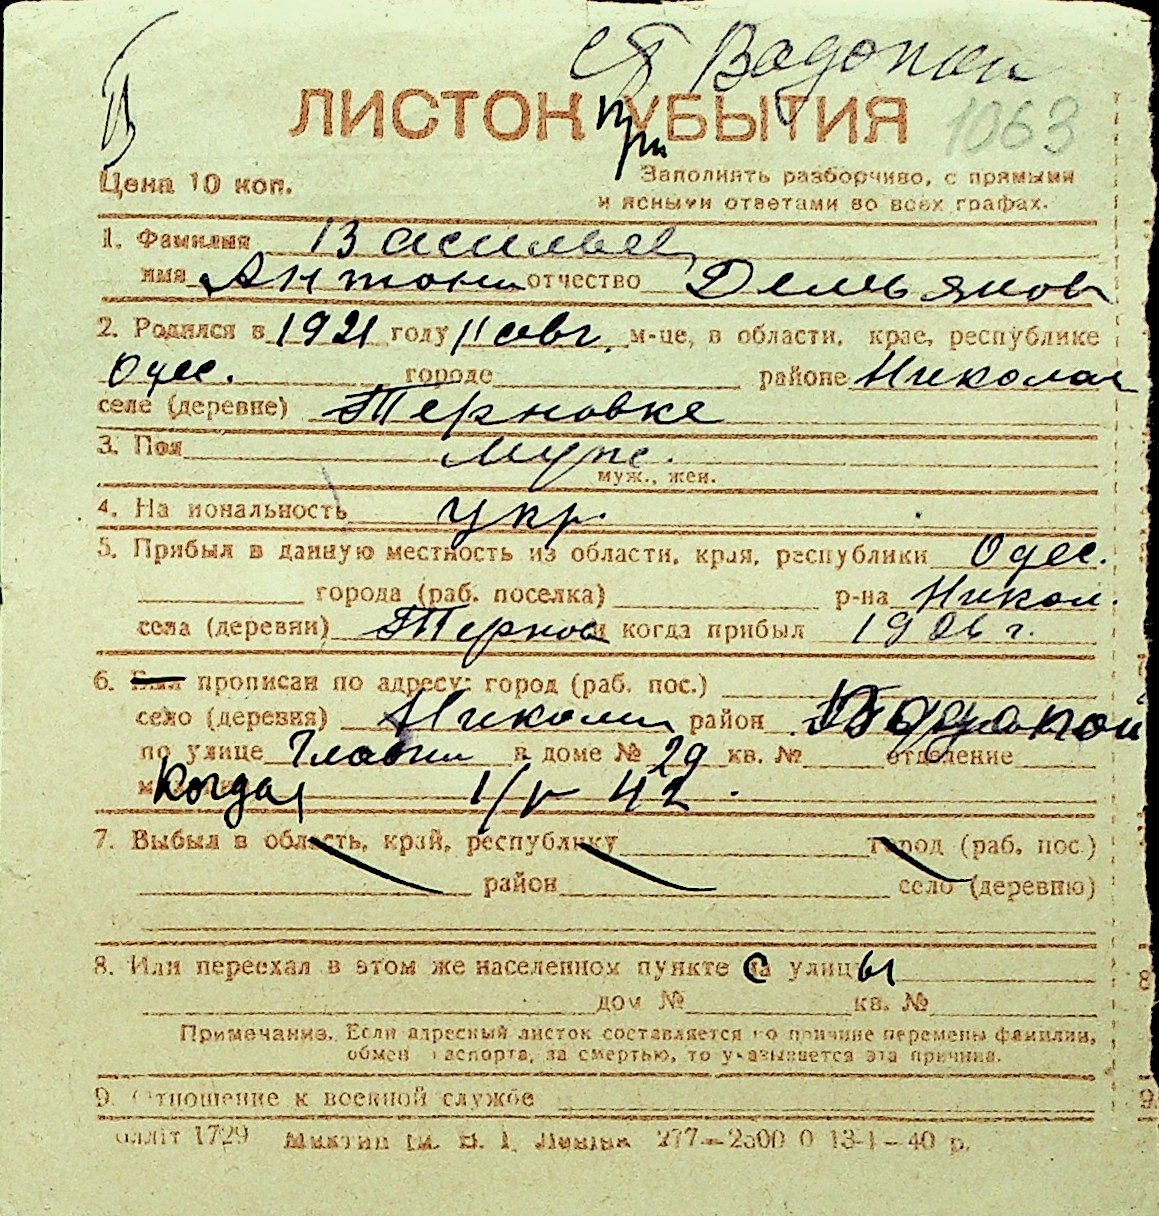 В
ст Водопой
ЛИСТОК УБЫТИЯ
при
1063
Цена 10 коп.
Заполнять разборчиво, с прямыми
и ясными ответами во всех графах.
1. Фамилия Васильев
имя Антон отчество Демьянов
2. Родился в 1921 году 11 авг. м-це, в области, крае, республике
Одес. городе районе Николаев
селе (деревне) Терновке
3. Пол муж.
муж., жен.
4. На иональность укр.
5. Прибыл в данную местность из области, края, республики Одес.
города (раб. поселка) р-на Никол.
села (деревни) Тернов и когда прибыл 1926 г.
6. Был прописан по адресу: город (раб. пос.)
село (деревня) район Водопой
по улице Главн в доме № 29 кв. № отделение
Когда 1/V 42.
7. Выбыл в область, край, республику город (раб. пос.)
район село (деревню)
8. Или переехал в этом же населенном пункте с улицы
дом № кв. №
Примечание. Если адресный листок составляется по причине перемены фамилии,
обмен паспорта, за смертью, то указывается эта причина.
9. Отношение к военной службе
облліт 1729 277—2500 0 13-1—40 р.